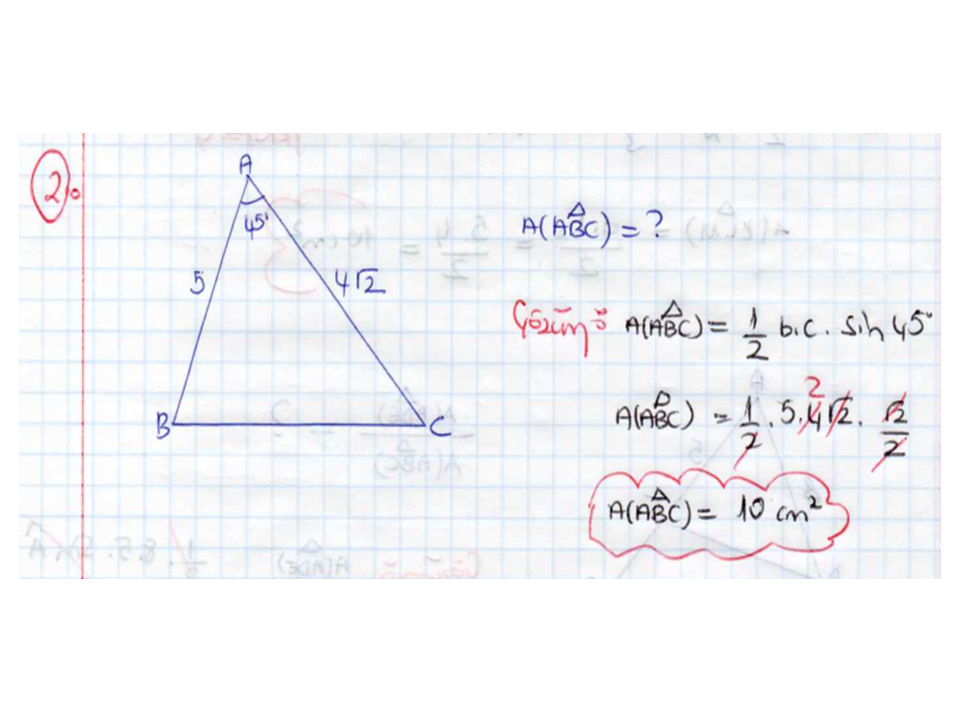 2.
A
45°
5
4√2
B
C
A(ABC) = ?
Çözüm: A(ABC) = 1/2 b.c. sin 45°
A(ABC) = 1/2 . 5 . 4√2 . √2/2
2
A(ABC) = 10 cm²